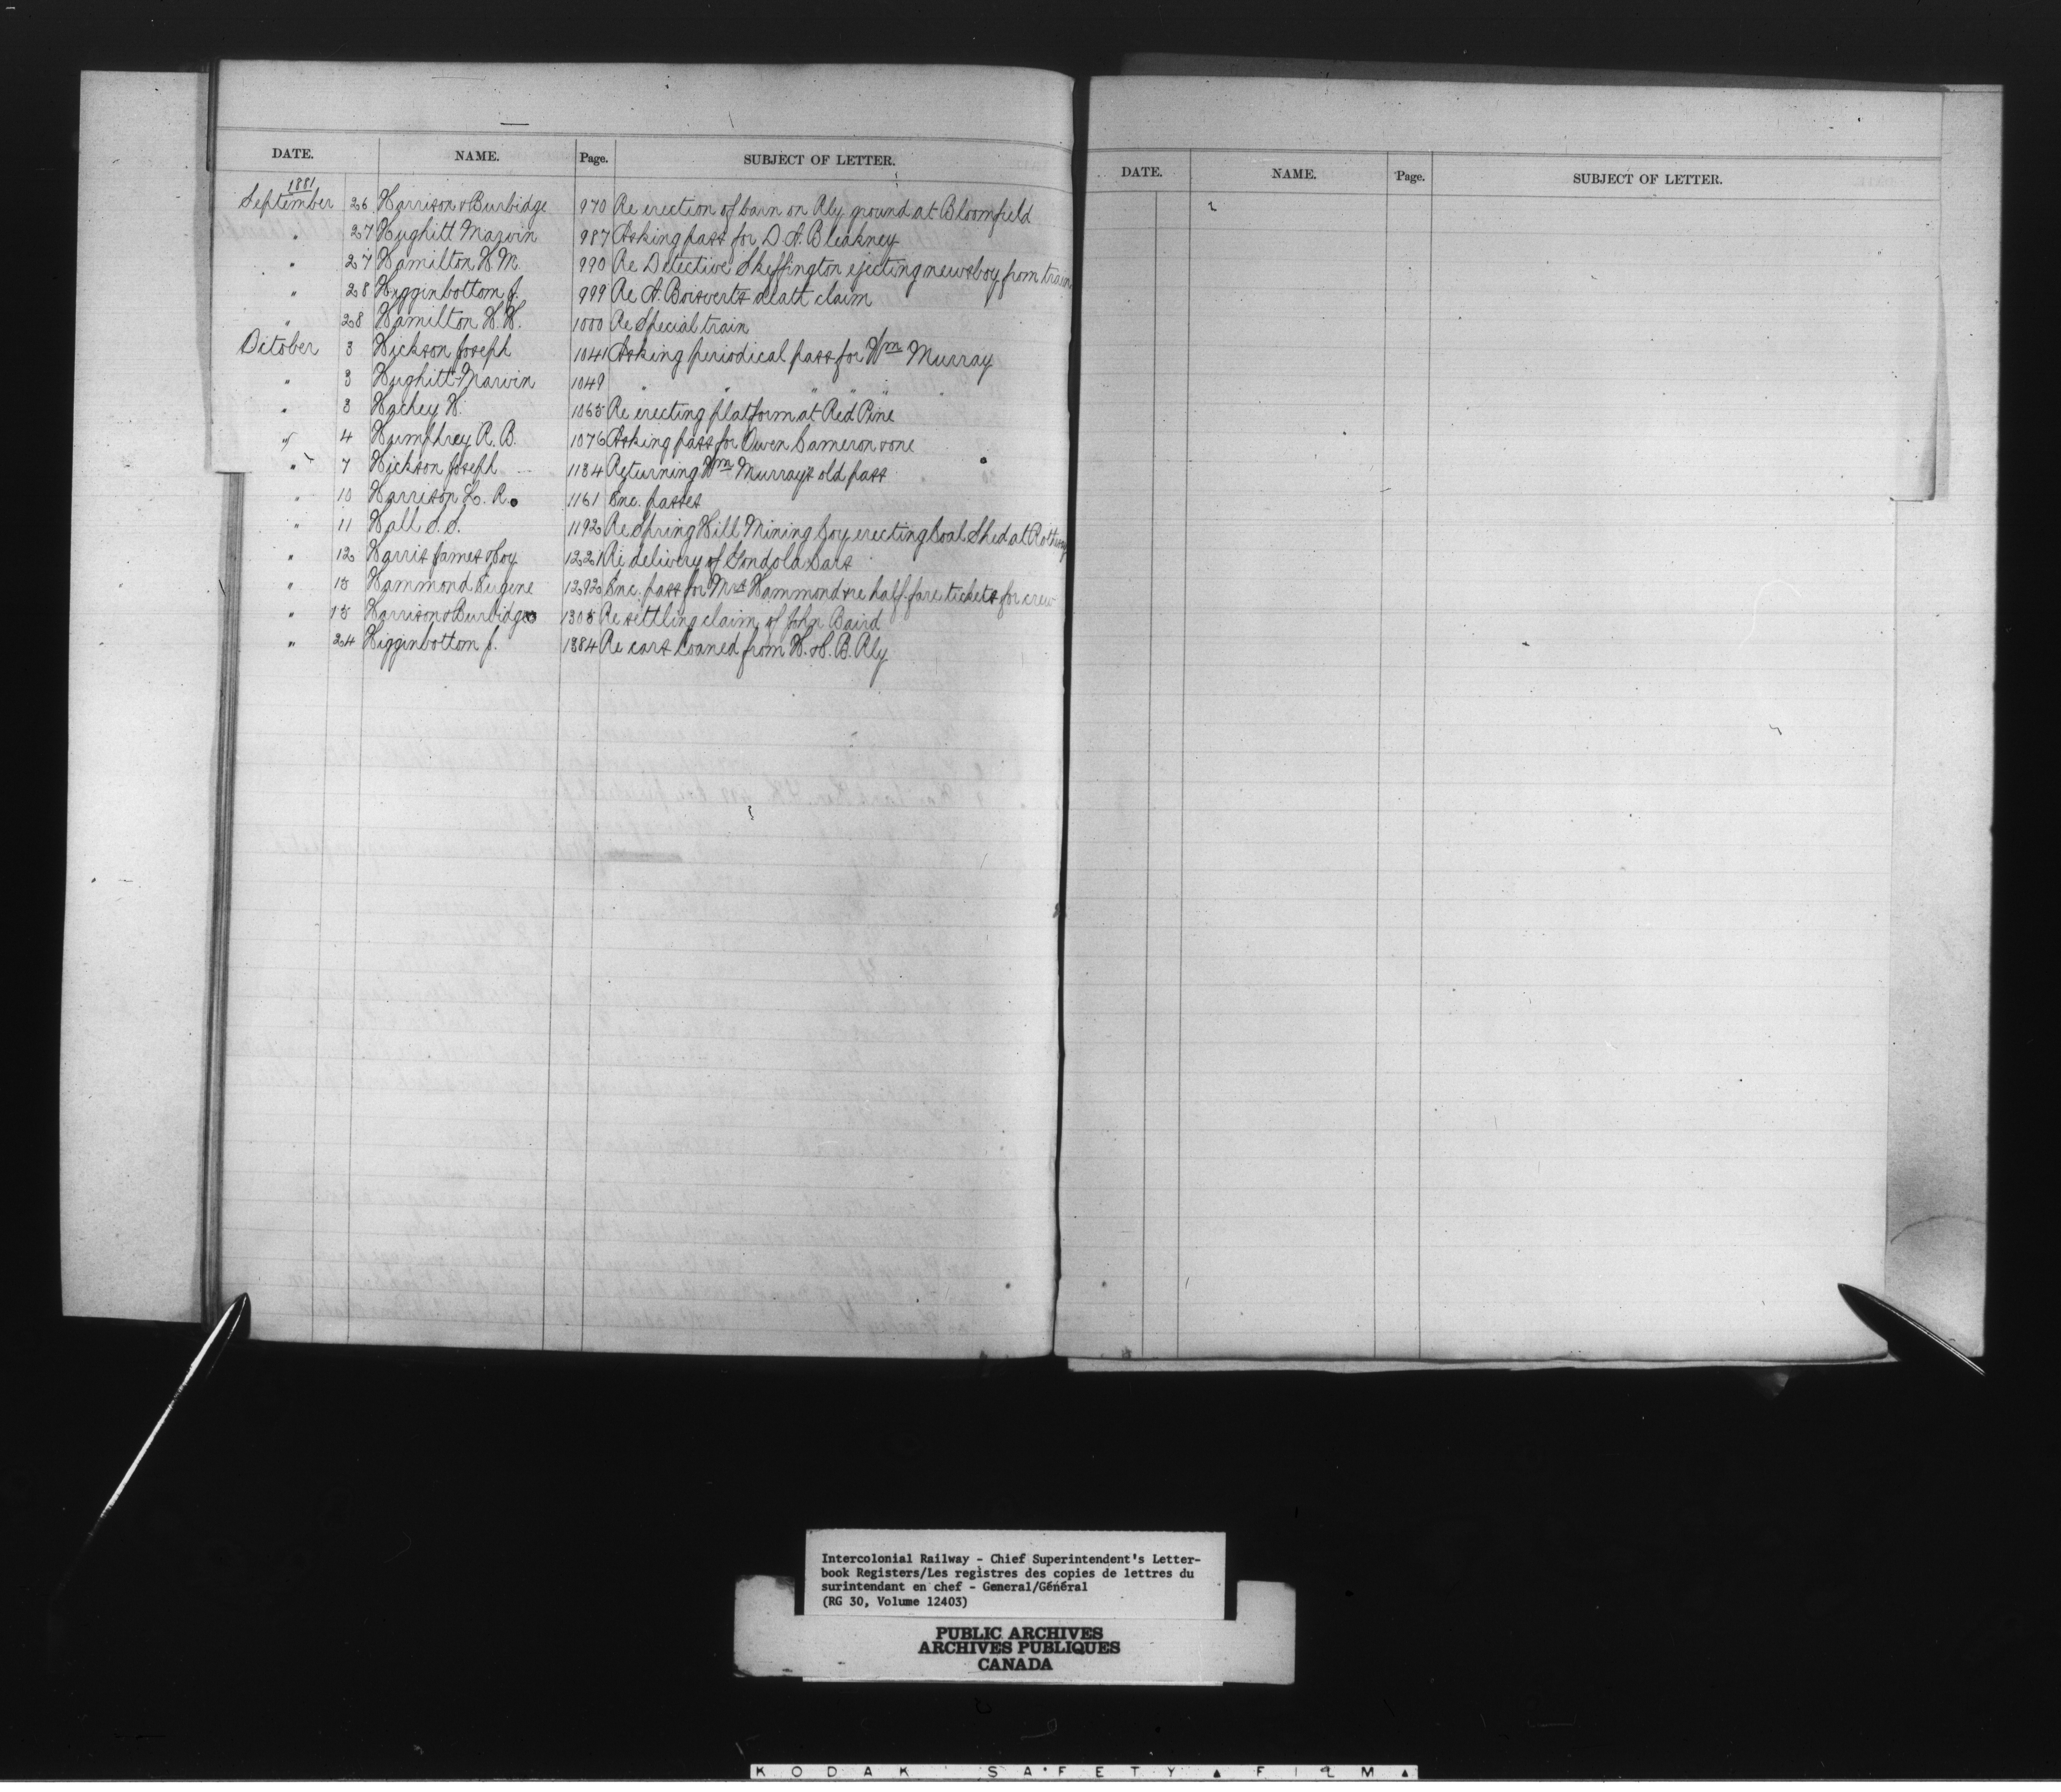 DATE. NAME. Page. SUBJECT OF LETTER.
1881
September 26 Harrison & Burbidge 970 Re erection of barn on Rly ground at Bloomfield
" 27 Hughitt Marvin 987 Asking pass for D. A. Bleakney
" 27 Hamilton H. M. 990 Re Detective Skeffington ejecting newsboy from train
" 28 Higginbottom J. 999 Re A. Boisverts death claim
" 28 Hamilton H. H. 1000 Re Special train
October 3 Hickson Joseph 1041 Asking periodical pass for Wm Murray
" 3 Hughitt Marvin 1049 " " " " "
" 3 Hachey H. 1065 Re erecting platform at Red Pine
" 4 Humphrey R. B. 1076 Asking pass for Owen Cameron & one
" 7 Hickson Joseph 1134 Returning Wm Murray's old pass
" 10 Harrison L. R. 1161 Enc. passes
" 11 Hall S. S. 1192 Re Spring Hill Mining Coy erecting Coal Shed at Rothesay
" 12 Harris James & Coy 1221 Re delivery of Gondola Cars
" 15 Hammond Eugene 1292 Enc. pass for Mrs Hammond & re half-fare tickets for crew
" 15 Harrison & Burbidge 1305 Re settling claim of John Baird
" 24 Higginbottom J. 1384 Re cars loaned from H. & C. B. Rly
DATE. NAME. Page. SUBJECT OF LETTER.
Intercolonial Railway - Chief Superintendent's Letter-
book Registers/Les registres des copies de lettres du
surintendant en chef - General/Général
(RG 30, Volume 12403)
PUBLIC ARCHIVES
ARCHIVES PUBLIQUES
CANADA
KODAK SAFETY FILM